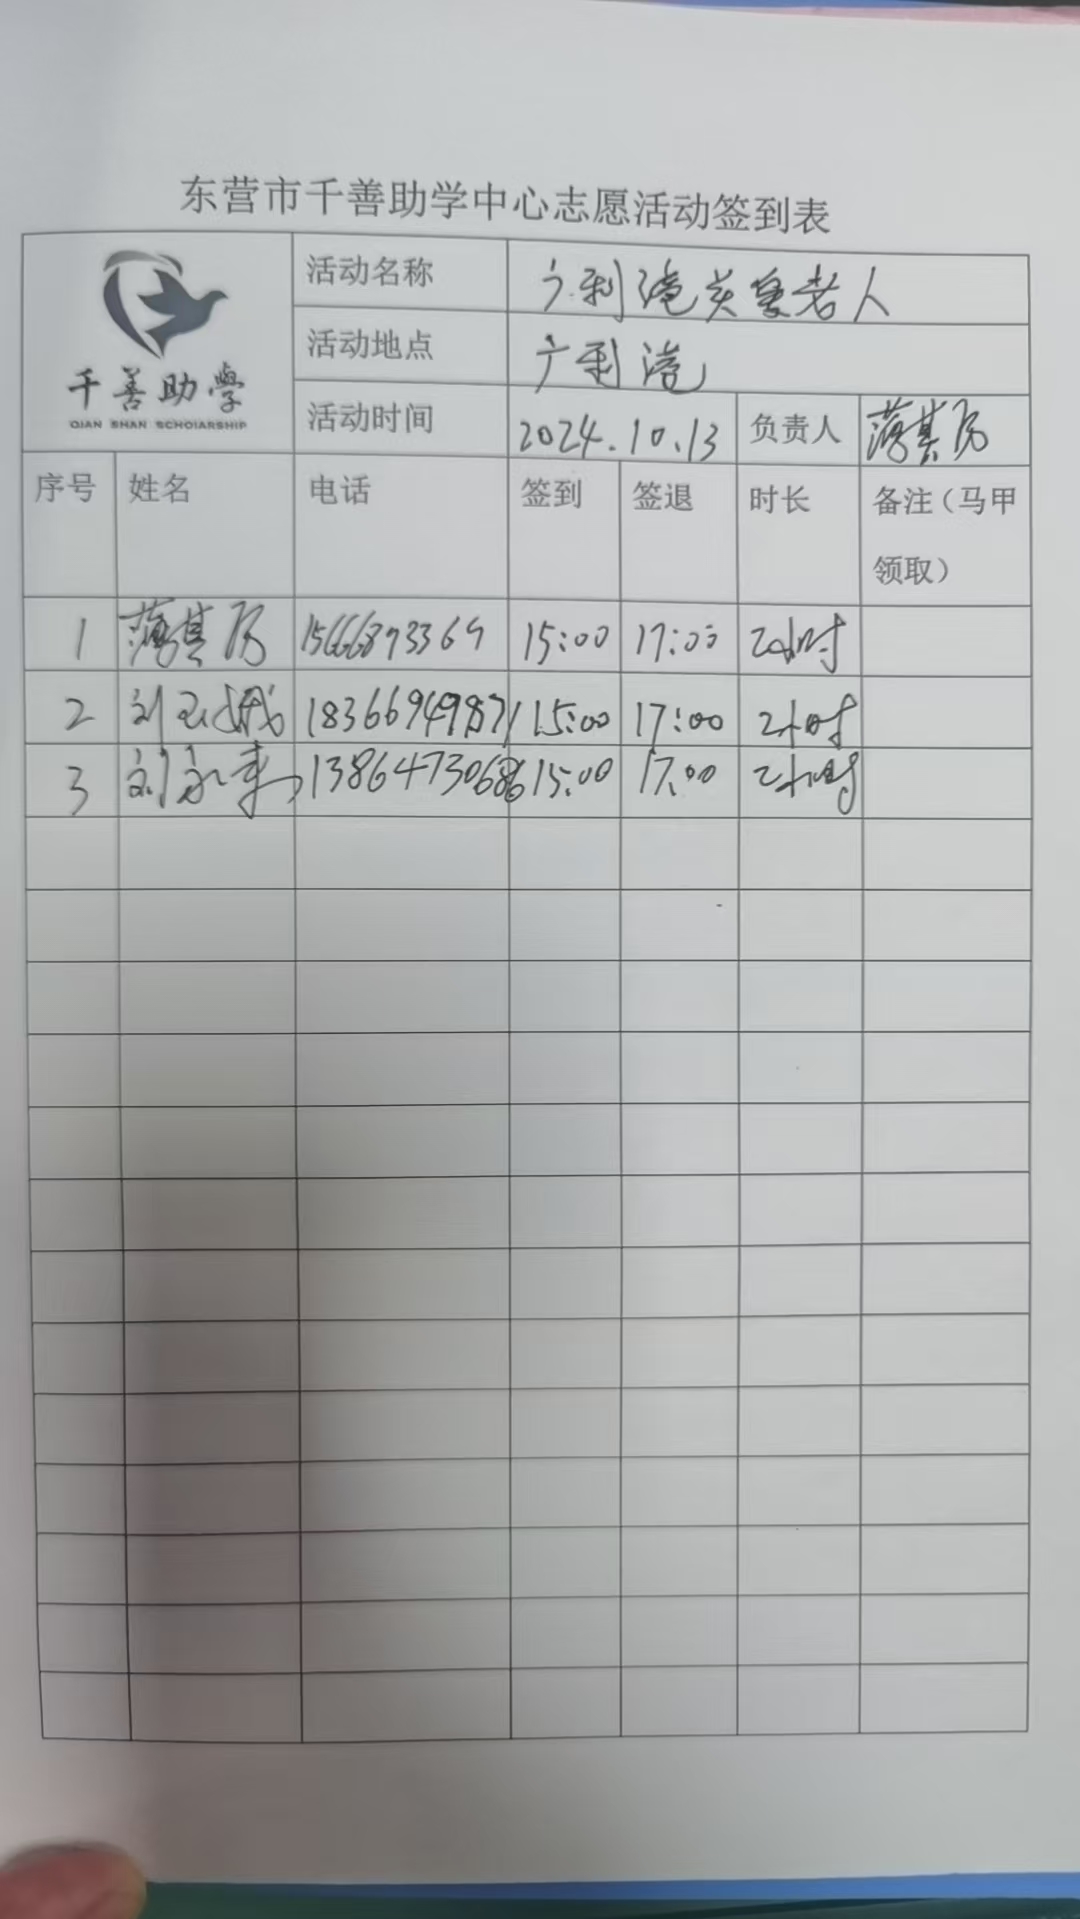 东营市千善助学中心志愿活动签到表
千善助學
QIAN SHAN SCHOIARSHIP
活动名称 广利港关爱老人
活动地点 广利港
活动时间 2024.10.13 负责人
序号 姓名 电话 签到 签退 时长 备注（马甲
领取）
1 15666873369 15:00 17:00 2小时
2 刘玉娥 18366949871 15:00 17:00 2小时
3 刘永寿 13864730686 15:00 17:00 2小时